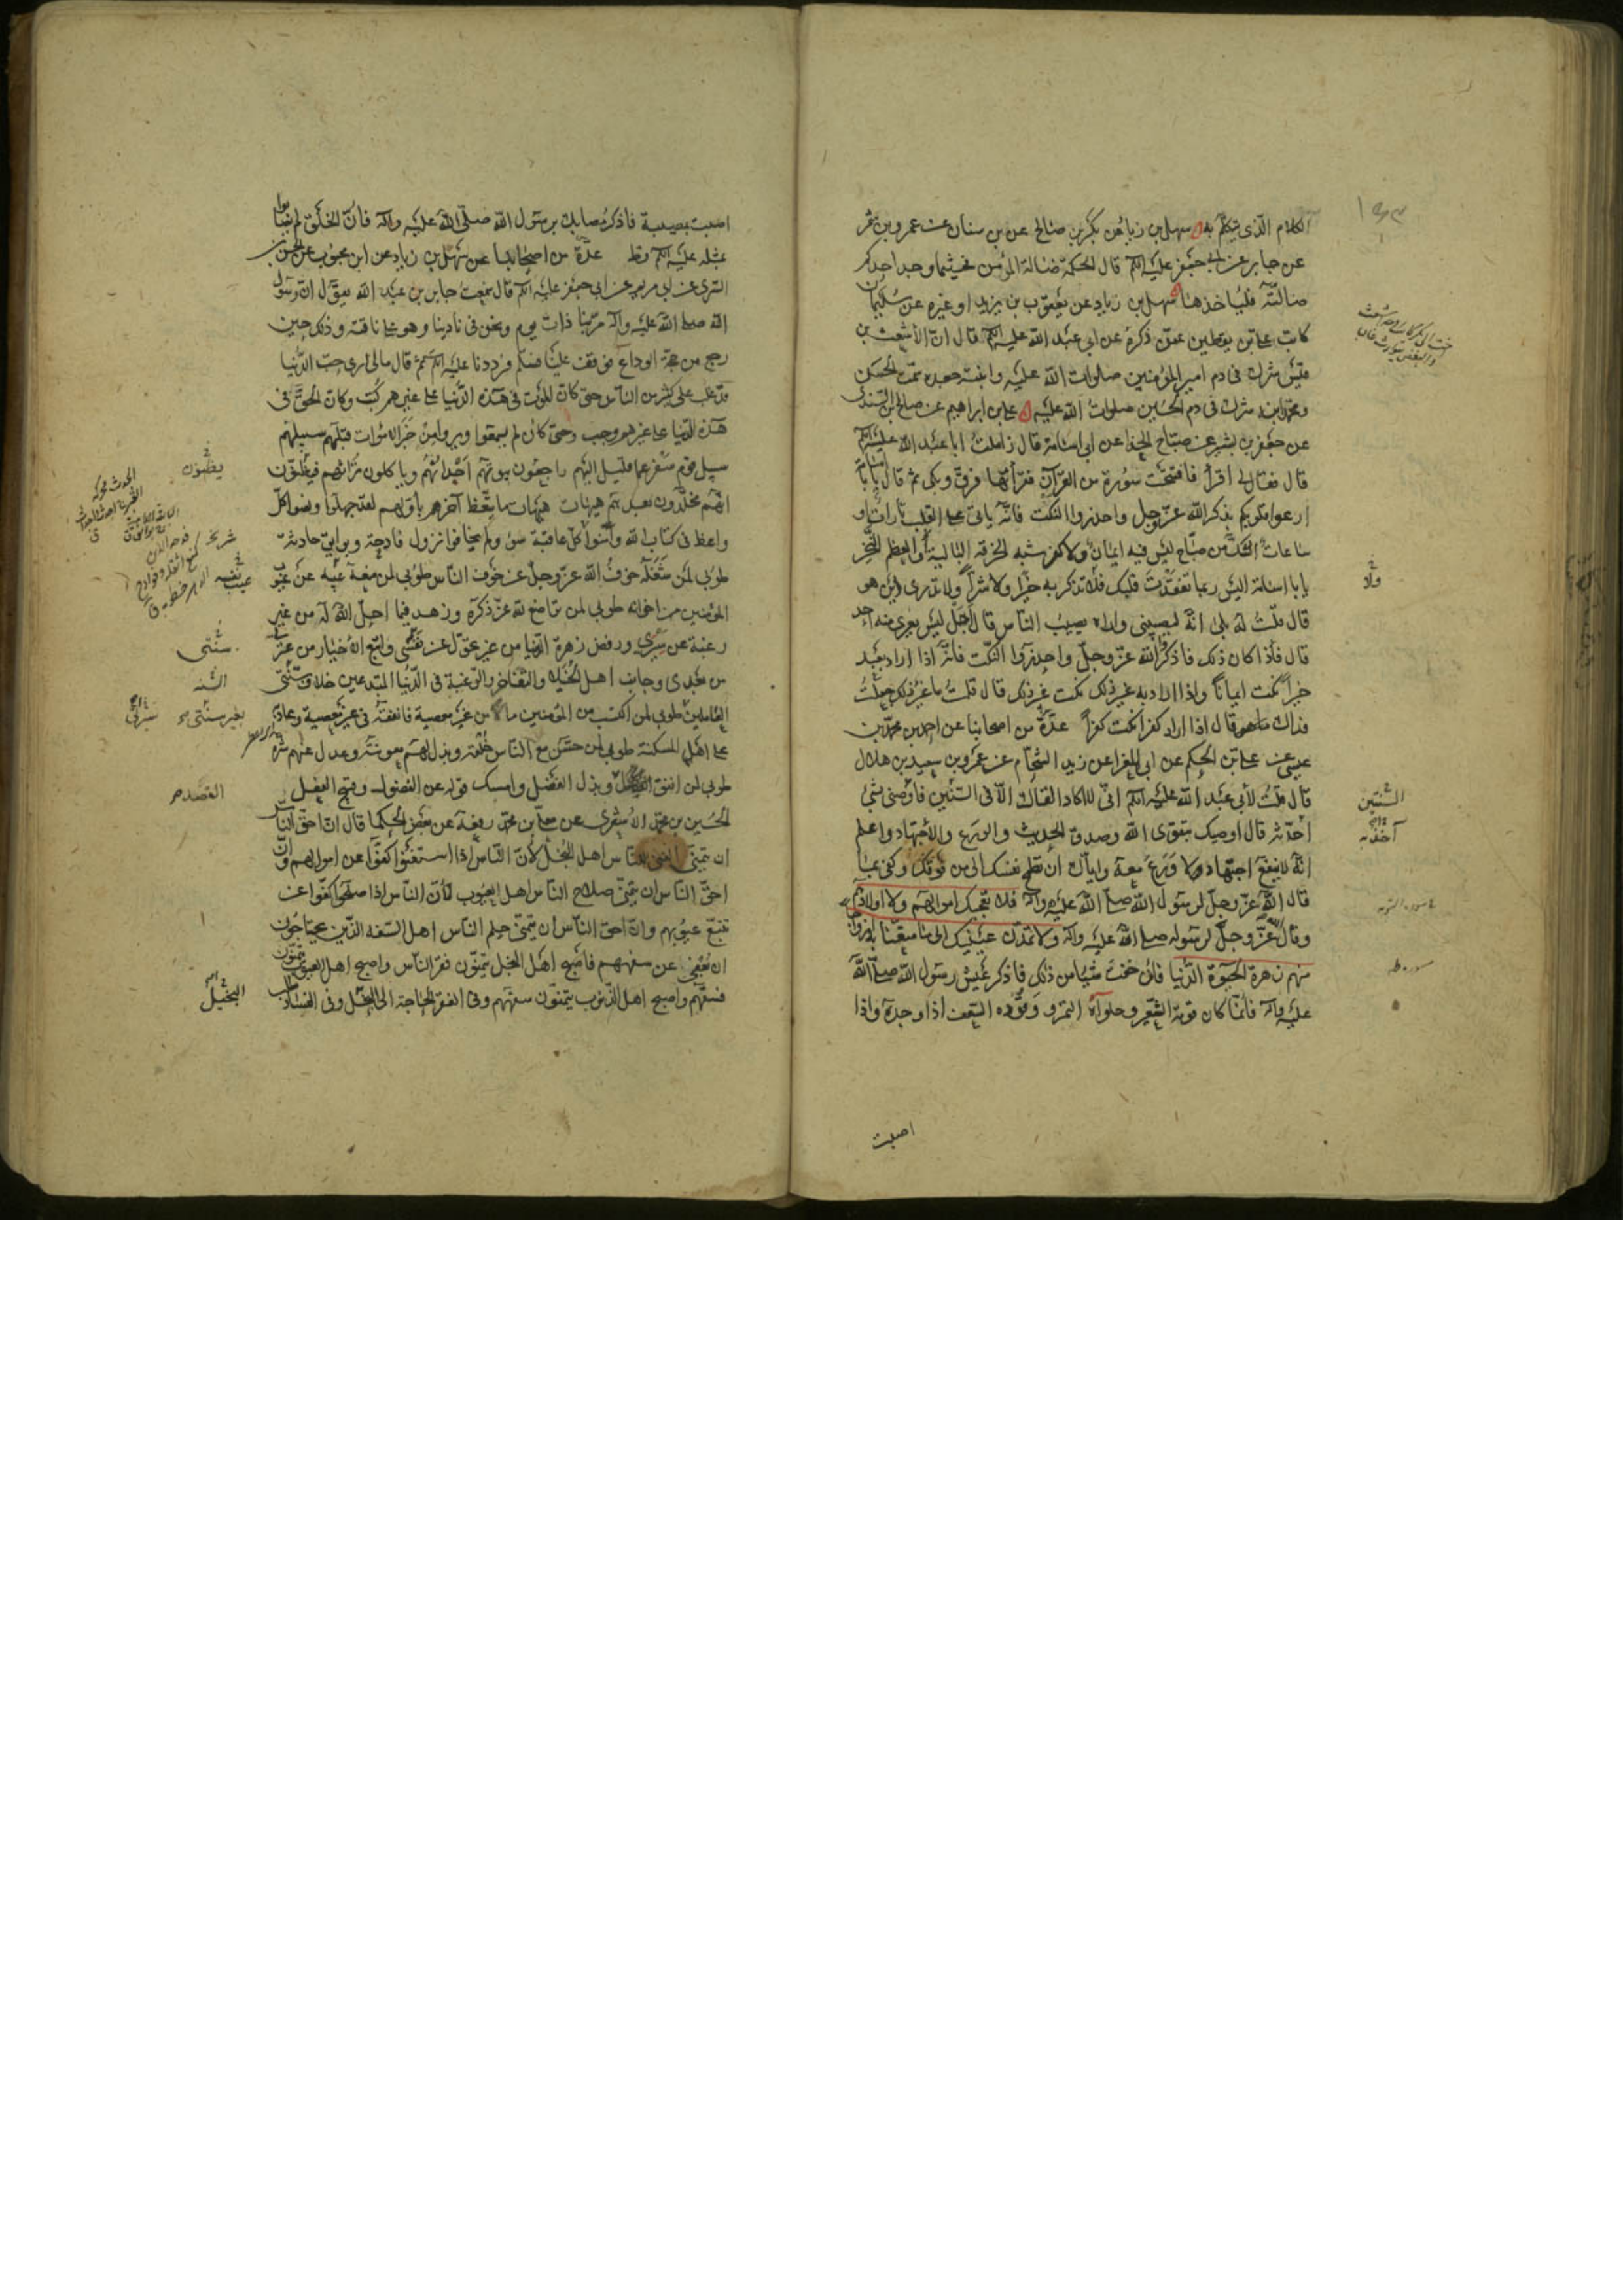 الكلام الذي يتكلم به سهل بن زياد عن بكر بن صالح عن بن سنان عن عمرو بن شمر
عن جابر عن ابي جعفر عليه السلم قال الحكمة ضالة المؤمن فحيثما وجد احدكم
ضالته فليأخذها سهل بن زياد عن يعقوب بن يزيد او غيره عن سليمان
كاتب علي بن يقطين عمن ذكره عن ابي عبد الله عليه السلم قال ان الأشعث بن
قيس شرك في دم امير المؤمنين صلوات الله عليه وابنته جعده سمّت الحسن
ومحمد ابنه شرك في دم الحسين صلوات الله عليه علي بن ابراهيم عن صالح بن السندي
عن جعفر بن بشير عن صباح الحذا عن ابي اسامة قال زاملت ابا عبد الله عليه السلم
قال فقال لي اقرأ فافتتحت سورة من القرآن فقرأتها فرقّ وبكى ثم قال يابا اسامة
ارعوا قلوبكم بذكر الله عز وجل واحذروا النكت فانه يأتي على القلب تارات او
ساعات الشك من صباح ليس فيه ايمان ولا كفر شبه الخرقة البالية أو العظم النخر
يابا اسامة اليس ربما تفقدت قلبك فلا تذكر به خيرا ولا شرا ولا تدري اين هو
قال قلت له بلى انه ليصيبني واراه يصيب الناس قال أجل ليس يعرى منه احد
قال فأذا كان ذلك فاذكروا الله عز وجل واحذروا النكت فانه اذا اراد بعبد
خيراً نكت ايماناً واذا اراد به غير ذلك نكت غير ذلك قال قلت ما غير ذلك جعلت
فداك ما هو قال اذا اراد كفرا نكت كفراً عدة من اصحابنا عن احمد بن محمد بن
عيسى عن علي بن الحكم عن ابي المغرا عن زيد الشحام عن عمرو بن سعيد بن هلال
قال قلت لأبي عبد الله عليه السلم اني لا اكاد القاك الا في السنين فأوصني بشئ
أخذ به قال اوصيك بتقوى الله وصدق الحديث والورع والأجتهاد واعلم
انه لا ينفع اجتهاد لا ورع معه واياك ان تطمح نفسك الى من فوقك وكفى بما
قال الله عز وجل لرسول الله صلى الله عليه وآله فلا تعجبك اموالهم ولا اولادهم
وقال الله عز وجل لرسوله صلى الله عليه وآله ولا تمدن عينيك الى ما متعنا به ازواجا
منهم زهرة الحيوة الدنيا فأن خفت شيئا من ذلك فاذكر عيش رسول الله صلى الله
عليه وآله فأنما كان قوته الشعير وحلواه التمر ووقوده السعف اذا وجده واذا
السنتين
آخذ به
سورة التوبه
سوره طه
اصبت
اصبت بمصيبة فاذكر مصابك برسول الله صلى الله عليه وآله فأن الخلق لم يصابوا
بمثله عليه السلم قط عدة من اصحابنا عن سهل بن زياد عن ابن محبوب عن الحسن بن
السري عن ابي مريم عن ابي جعفر عليه السلم قال سمعت جابر بن عبد الله يقول ان رسول
الله صلى الله عليه وآله مر بنا ذات يوم ونحن في نادينا وهو على ناقته وذلك حين
رجع من حجة الوداع فوقف علينا فسلم فرددنا عليه السلم ثم قال مالي ارى حب الدنيا
قد غلب على كثير من الناس حتى كان الموت في هذه الدنيا على غيرهم كتب وكان الحق في
هذه الدنيا على غيرهم وجب وحتى كان لم يسمعوا ويروا من خبر الاموات قبلهم سبيلهم
سبيل قوم سفر عما قليل اليهم راجعون بيوتهم أجداثهم ويأكلون تراثهم فيظنون
انهم مخلدون بعدهم هيهات هيهات ما يتعظ آخرهم بأولهم لقد جهلوا ونسوا كل
واعظ في كتاب الله وأمنوا كل عاقبة سوء ولم يخافوا نزول فادحة وبوايق حادثة
طوبى لمن شغله خوف الله عز وجل عن خوف الناس طوبى لمن منعه عيبه عن عيوب
المؤمنين من اخوانه طوبى لمن تواضع لله عز ذكره وزهد فيما احل الله له من غير
رغبة عن سيرتي ورفض زهرة الدنيا من غير تحول عن سنتي واتبع الاخيار من عترتي
من بعدي وجانب اهل الخيلاء والتفاخر والرغبة في الدنيا المبتدعين خلاف سنتي
العاملين طوبى لمن اكتسب من المؤمنين مالا من غير معصية فانفقه في غير معصية وعاد به
على اهل المسكنة طوبى لمن حسن مع الناس خلقه وبذل لهم معونته وعدل عنهم شره
طوبى لمن انفق وبذل الفضل وامسك قوله عن الفضول وقبيح الفعل
الحسين بن محمد الأشعري عن معلى بن محمد رفعه عن بعض الحكما قال ان احق الناس
ان يتمنى الغنى للناس اهل البخل لأن الناس اذا استغنوا كفوا عن اموالهم وان
احق الناس ان يتمنى صلاح الناس اهل العيوب لأن الناس اذا صلحوا كفوا عن
تتبع عيوبهم وان احق الناس أن يتمنى حلم الناس اهل السفه الذين يحتاجون
ان يعفى عن سفههم فأصبح اهل البخل يتمنون فقر الناس واصبح اهل العيوب يتمنون
فسقهم واصبح اهل الذنوب يتمنون سفههم وفي الفقر الحاجة الى البخيل وفي الفساد طلب
يظنون
سنتي
السنه
القصد
البخيل